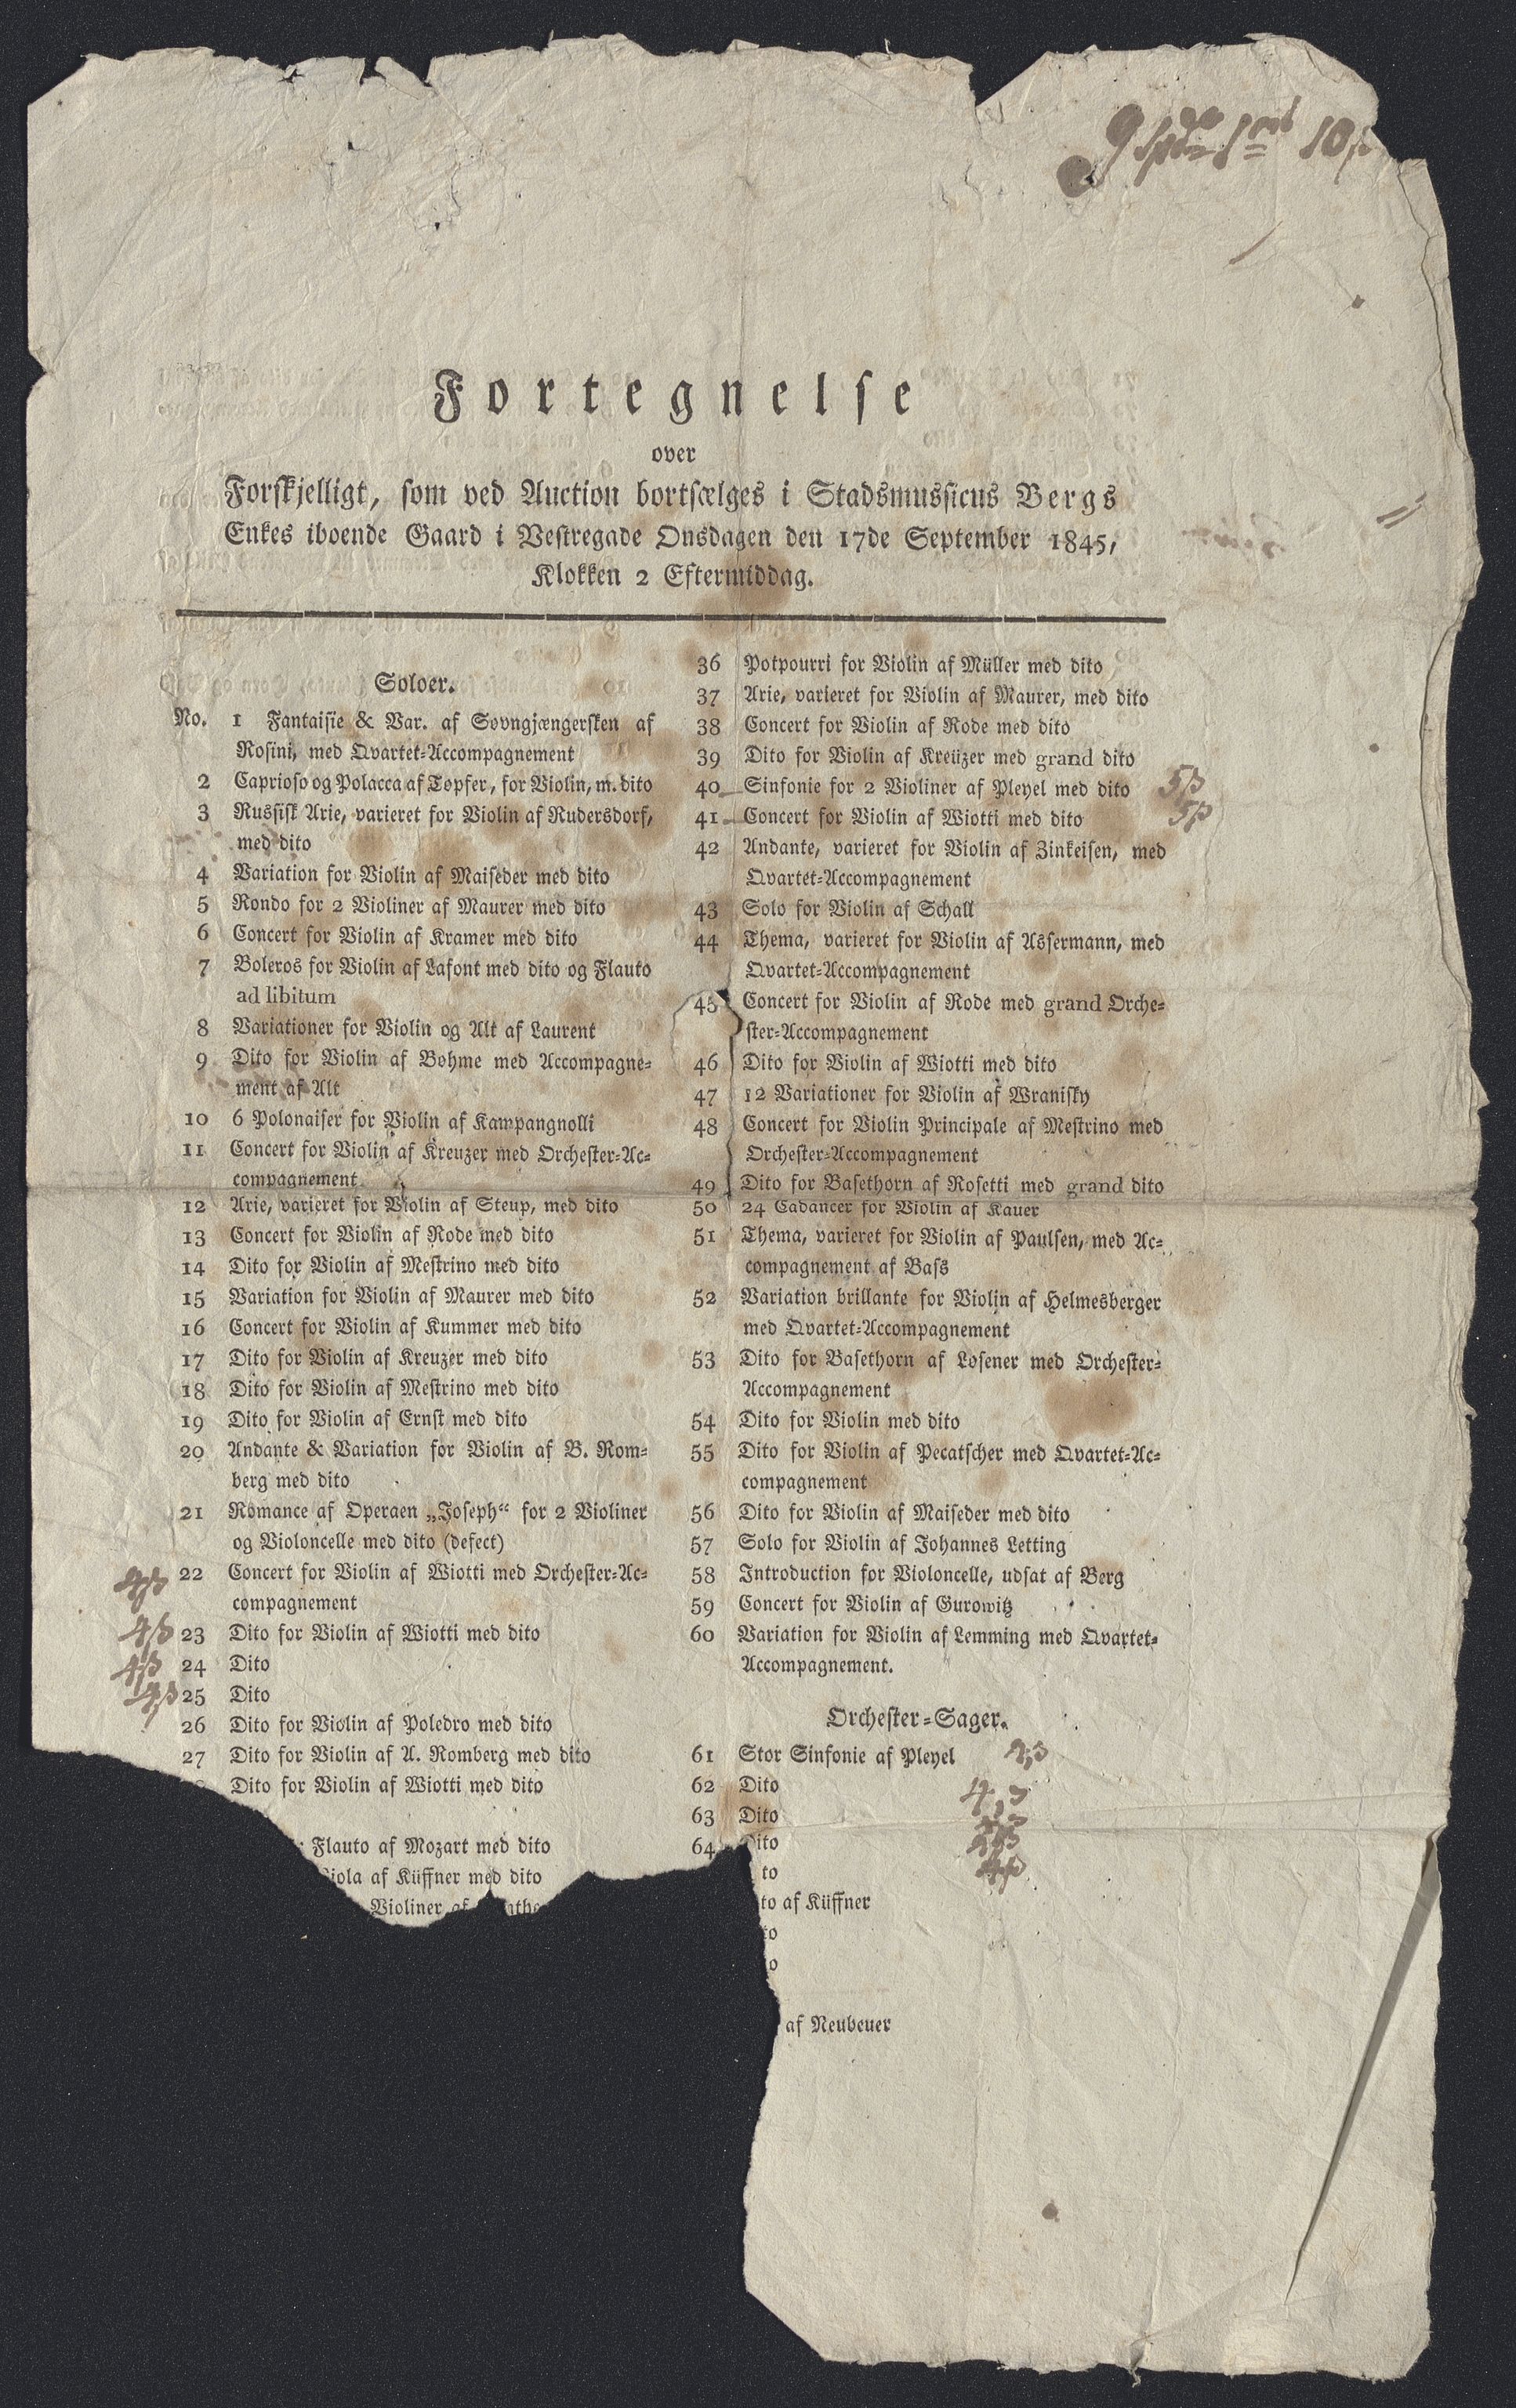 Fortegnelse
over
Forskjelligt, som ved Auction bortsælges i Stadsmussicus Bergs
Enkes iboende Gaard i Vestregade Onsdagen den 17de September 1845,
Klokken 2 Eftermiddag.
Soloer.
No. 1 Fantaisie & Var. af Sovngjængersken af
Rosini, med Qvartet-Accompagnement
2 Caprioso og Polacca af Topfer, for Violin, m. dito
3 Russisk Arie, varieret for Violin af Rudersdorf,
med dito
4 Variation for Violin af Maiseder med dito
5 Rondo for 2 Violiner af Maurer med dito
6 Concert for Violin af Kramer med dito
7 Boleros for Violin af Lafont med dito og Flauto
ad libitum
8 Variationer for Violin og Alt af Laurent
9 Dito for Violin af Bohme med Accompagne-
ment af Alt
10 6 Polonaiser for Violin af Kampangnolli
11 Concert for Violin af Kreuzer med Orchester-Ac-
compagnement
12 Arie, varieret for Violin af Steup, med dito
13 Concert for Violin af Rode med dito
14 Dito for Violin af Mestrino med dito
15 Variation for Violin af Maurer med dito
16 Concert for Violin af Kummer med dito
17 Dito for Violin af Kreuzer med dito
18 Dito for Violin af Mestrino med dito
19 Dito for Violin af Ernst med dito
20 Andante & Variation for Violin af B. Rom-
berg med dito
21 Romance af Operaen „Joseph“ for 2 Violiner
og Violoncelle med dito (defect)
22 Concert for Violin af Wiotti med Orchester-Ac-
compagnement
4ß 23 Dito for Violin af Wiotti med dito
4ß 24 Dito
4ß 25 Dito
26 Dito for Violin af Poledro med dito
27 Dito for Violin af A. Romberg med dito
Dito for Violin af Wiotti med dito
Flauto af Mozart med dito
iola af Küffner med dito
Violiner af
36 Potpourri for Violin af Müller med dito
37 Arie, varieret for Violin af Maurer, med dito
38 Concert for Violin af Rode med dito
39 Dito for Violin af Kreüzer med grand dito
40 Sinfonie for 2 Violiner af Pleyel med dito 5ß
41 Concert for Violin af Wiotti med dito 5ß
42 Andante, varieret for Violin af Zinkeisen, med
Qvartet-Accompagnement
43 Solo for Violin af Schall
44 Thema, varieret for Violin af Assermann, med
Qvartet-Accompagnement
45 Concert for Violin af Rode med grand Orche-
ster-Accompagnement
46 Dito for Violin af Wiotti med dito
47 12 Variationer for Violin af Wranisky
48 Concert for Violin Principale af Mestrino med
Orchester-Accompagnement
49 Dito for Basethorn af Rosetti med grand dito
50 24 Cadancer for Violin af Kauer
51 Thema, varieret for Violin af Paulsen, med Ac-
compagnement af Bass
52 Variation brillante for Violin af Helmesberger
med Qvartet-Accompagnement
53 Dito for Basethorn af Losener med Orchester-
Accompagnement
54 Dito for Violin med dito
55 Dito for Violin af Pecatscher med Qvartet-Ac-
compagnement
56 Dito for Violin af Maiseder med dito
57 Solo for Violin af Johannes Letting
58 Introduction for Violoncelle, udsat af Berg
59 Concert for Violin af Gurowitz
60 Variation for Violin af Lemming med Qvartet-
Accompagnement.
Orchester-Sager.
61 Stor Sinfonie af Pleyel
62 Dito
63 Dito
64 Dito
to
to af Küffner
to
o
af Neubeuer